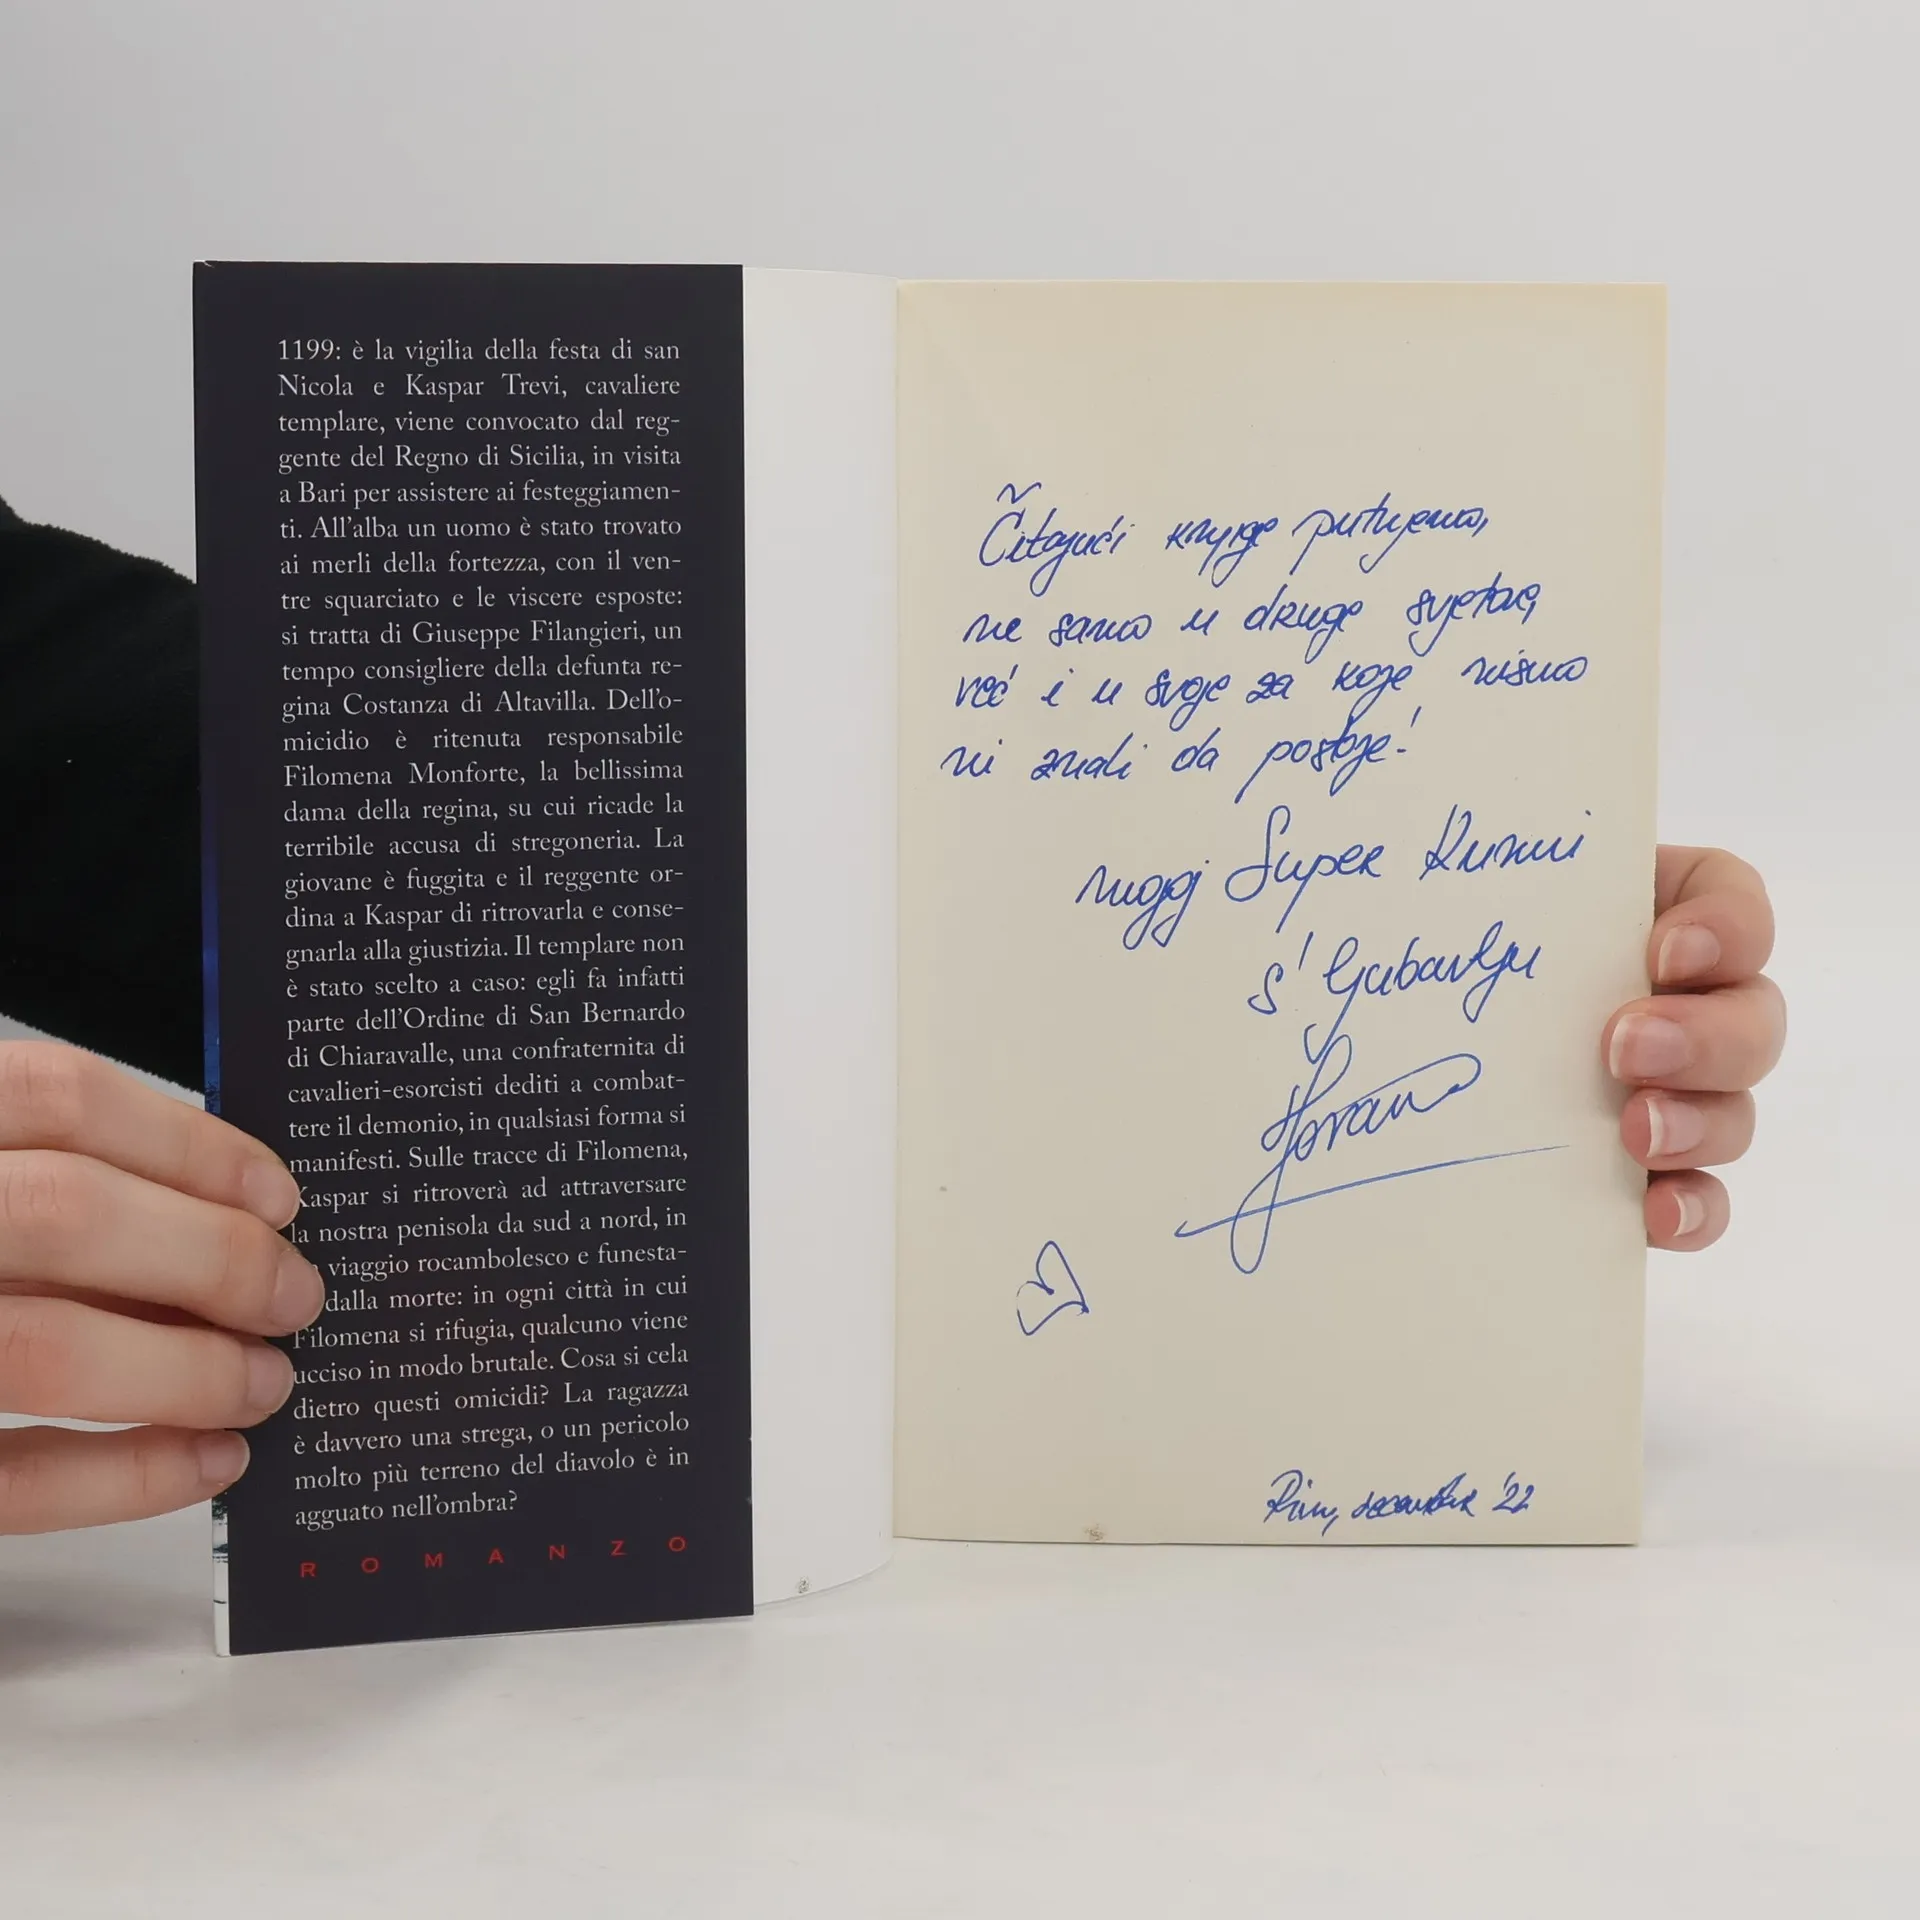 1199: è la vigilia della festa di san
Nicola e Kaspar Trevi, cavaliere
templare, viene convocato dal reg-
gente del Regno di Sicilia, in visita
a Bari per assistere ai festeggiamen-
ti. All'alba un uomo è stato trovato
ai merli della fortezza, con il ven-
tre squarciato e le viscere esposte:
si tratta di Giuseppe Filangieri, un
tempo consigliere della defunta re-
gina Costanza di Altavilla. Dell'o-
micidio è ritenuta responsabile
Filomena Monforte, la bellissima
dama della regina, su cui ricade la
terribile accusa di stregoneria. La
giovane è fuggita e il reggente or-
dina a Kaspar di ritrovarla e conse-
gnarla alla giustizia. Il templare non
è stato scelto a caso: egli fa infatti
parte dell'Ordine di San Bernardo
di Chiaravalle, una confraternita di
cavalieri-esorcisti dediti a combat-
tere il demonio, in qualsiasi forma si
manifesti. Sulle tracce di Filomena,
Kaspar si ritroverà ad attraversare
la nostra penisola da sud a nord, in
viaggio rocambolesco e funesta-
dalla morte: in ogni città in cui
Filomena si rifugia, qualcuno viene
ucciso in modo brutale. Cosa si cela
dietro questi omicidi? La ragazza
è davvero una strega, o un pericolo
molto più terreno del diavolo è in
agguato nell'ombra?
ROMANZO
Čitajući knjige putujemo,
ne samo u druge svjetove,
već i u svoje za koje nismo
ni znali da postoje!
mojoj Super
s' ljubavlju
Rim, decembar '22